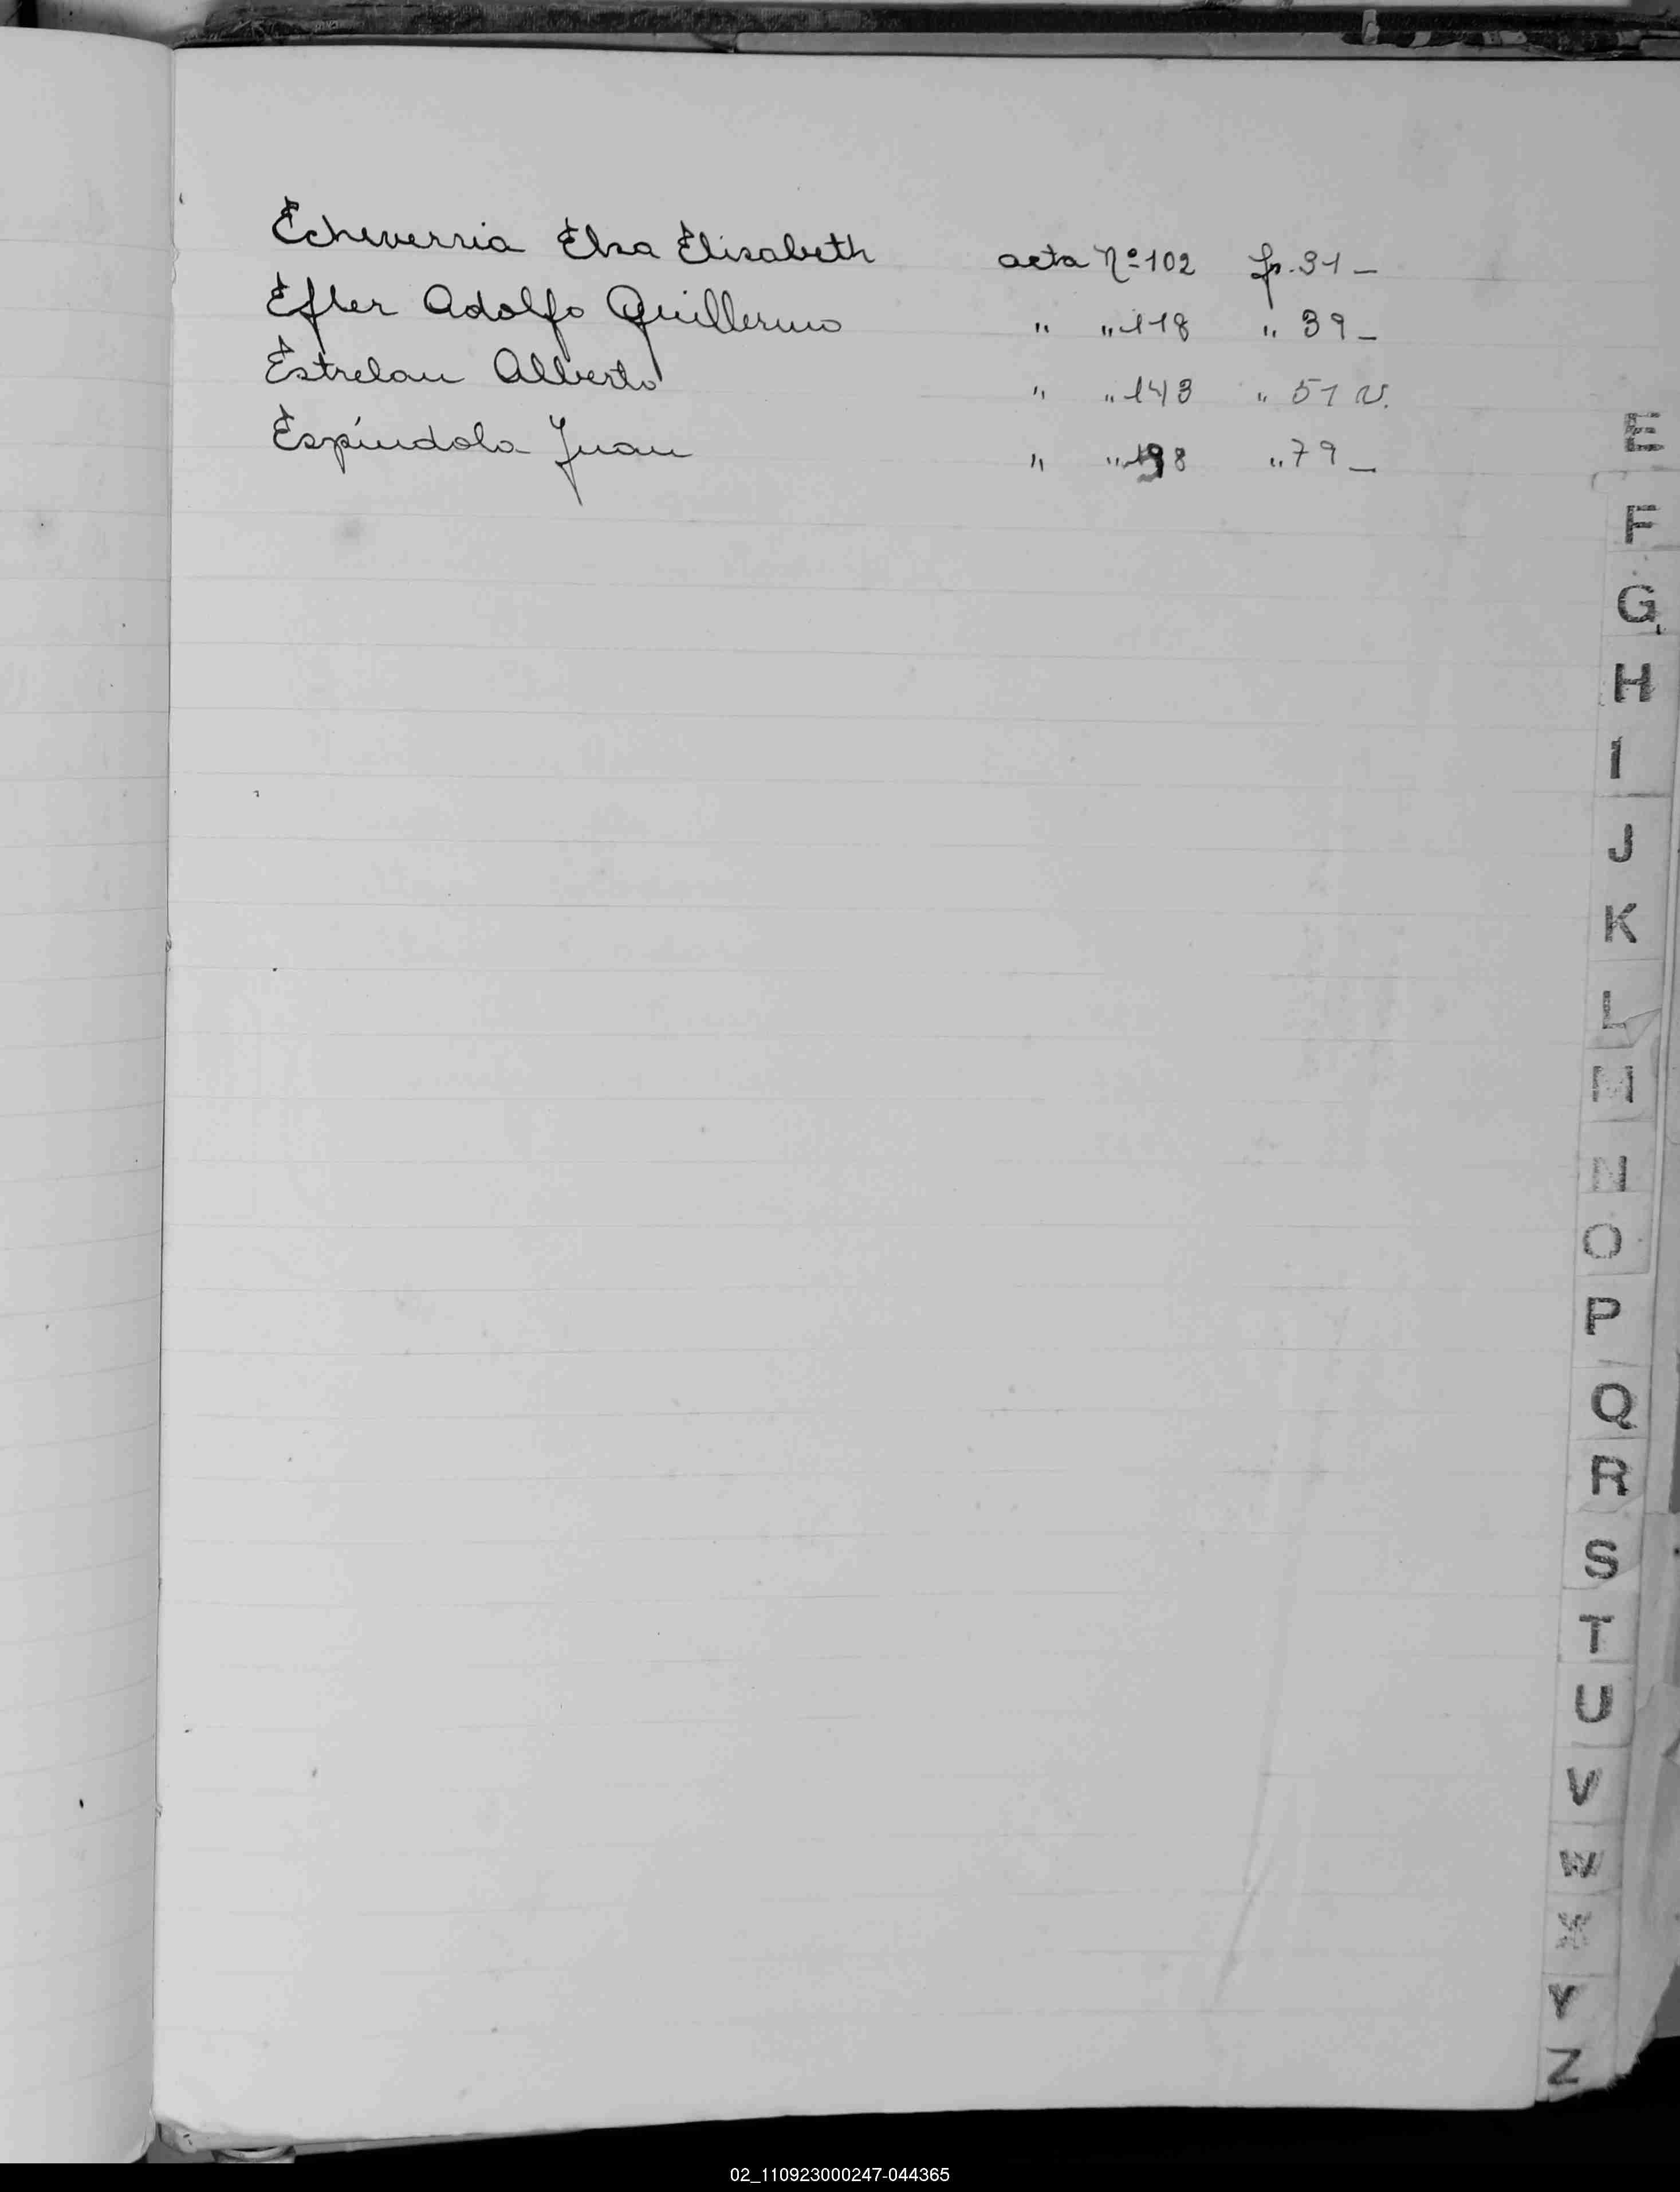 Echeverria Elsa Elisabeth acta Nº 102 fº. 31 –
Efler Adolfo Guillermo " " 118 " 39 –
Estrelau Alberto " " 143 " 51 v.
Espíndola Juan " " 198 " 79 –
E
F
G
H
I
J
K
L
M
N
O
P
Q
R
S
T
U
V
W
X
Y
Z
02_110923000247-044365